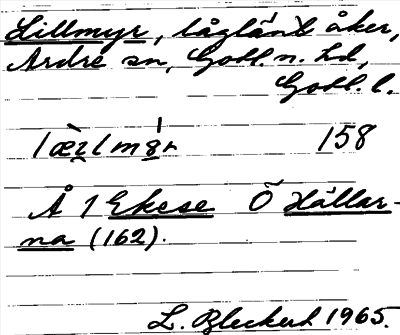 Lillmyr, låglänt åker,
Ardre sn, Gotl. n. hd,
Gotl. l.
158
Å 1 Ekese Ö Hällar-
na (162).
L. Bleckert 1965.